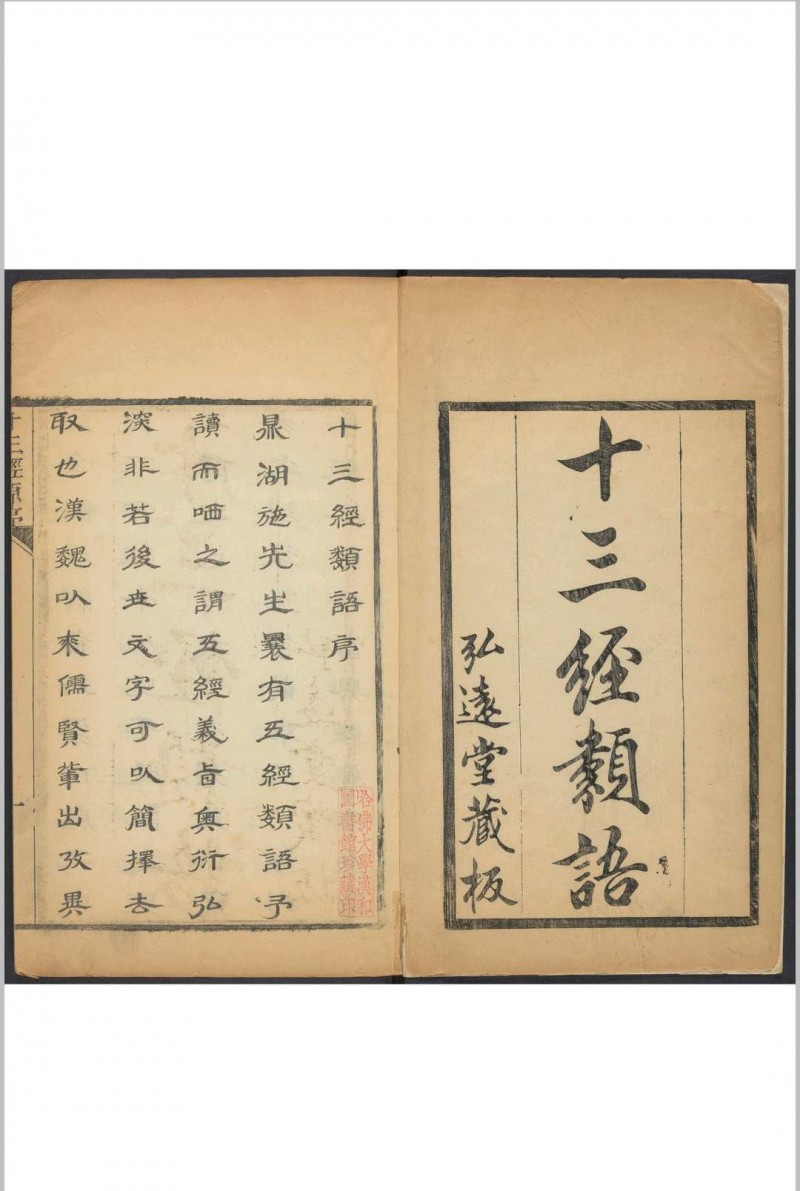 十三經類語
弘遠堂藏板
十三經類語序
鼎湖施先生曩有五經類語予
讀而哂之謂五經義旨奧衍弘
深非若後世文字可以簡擇去
取也漢魏以來儒賢輩出攷異
哈佛大學漢和
圖書館珍藏印
十三經類序
一